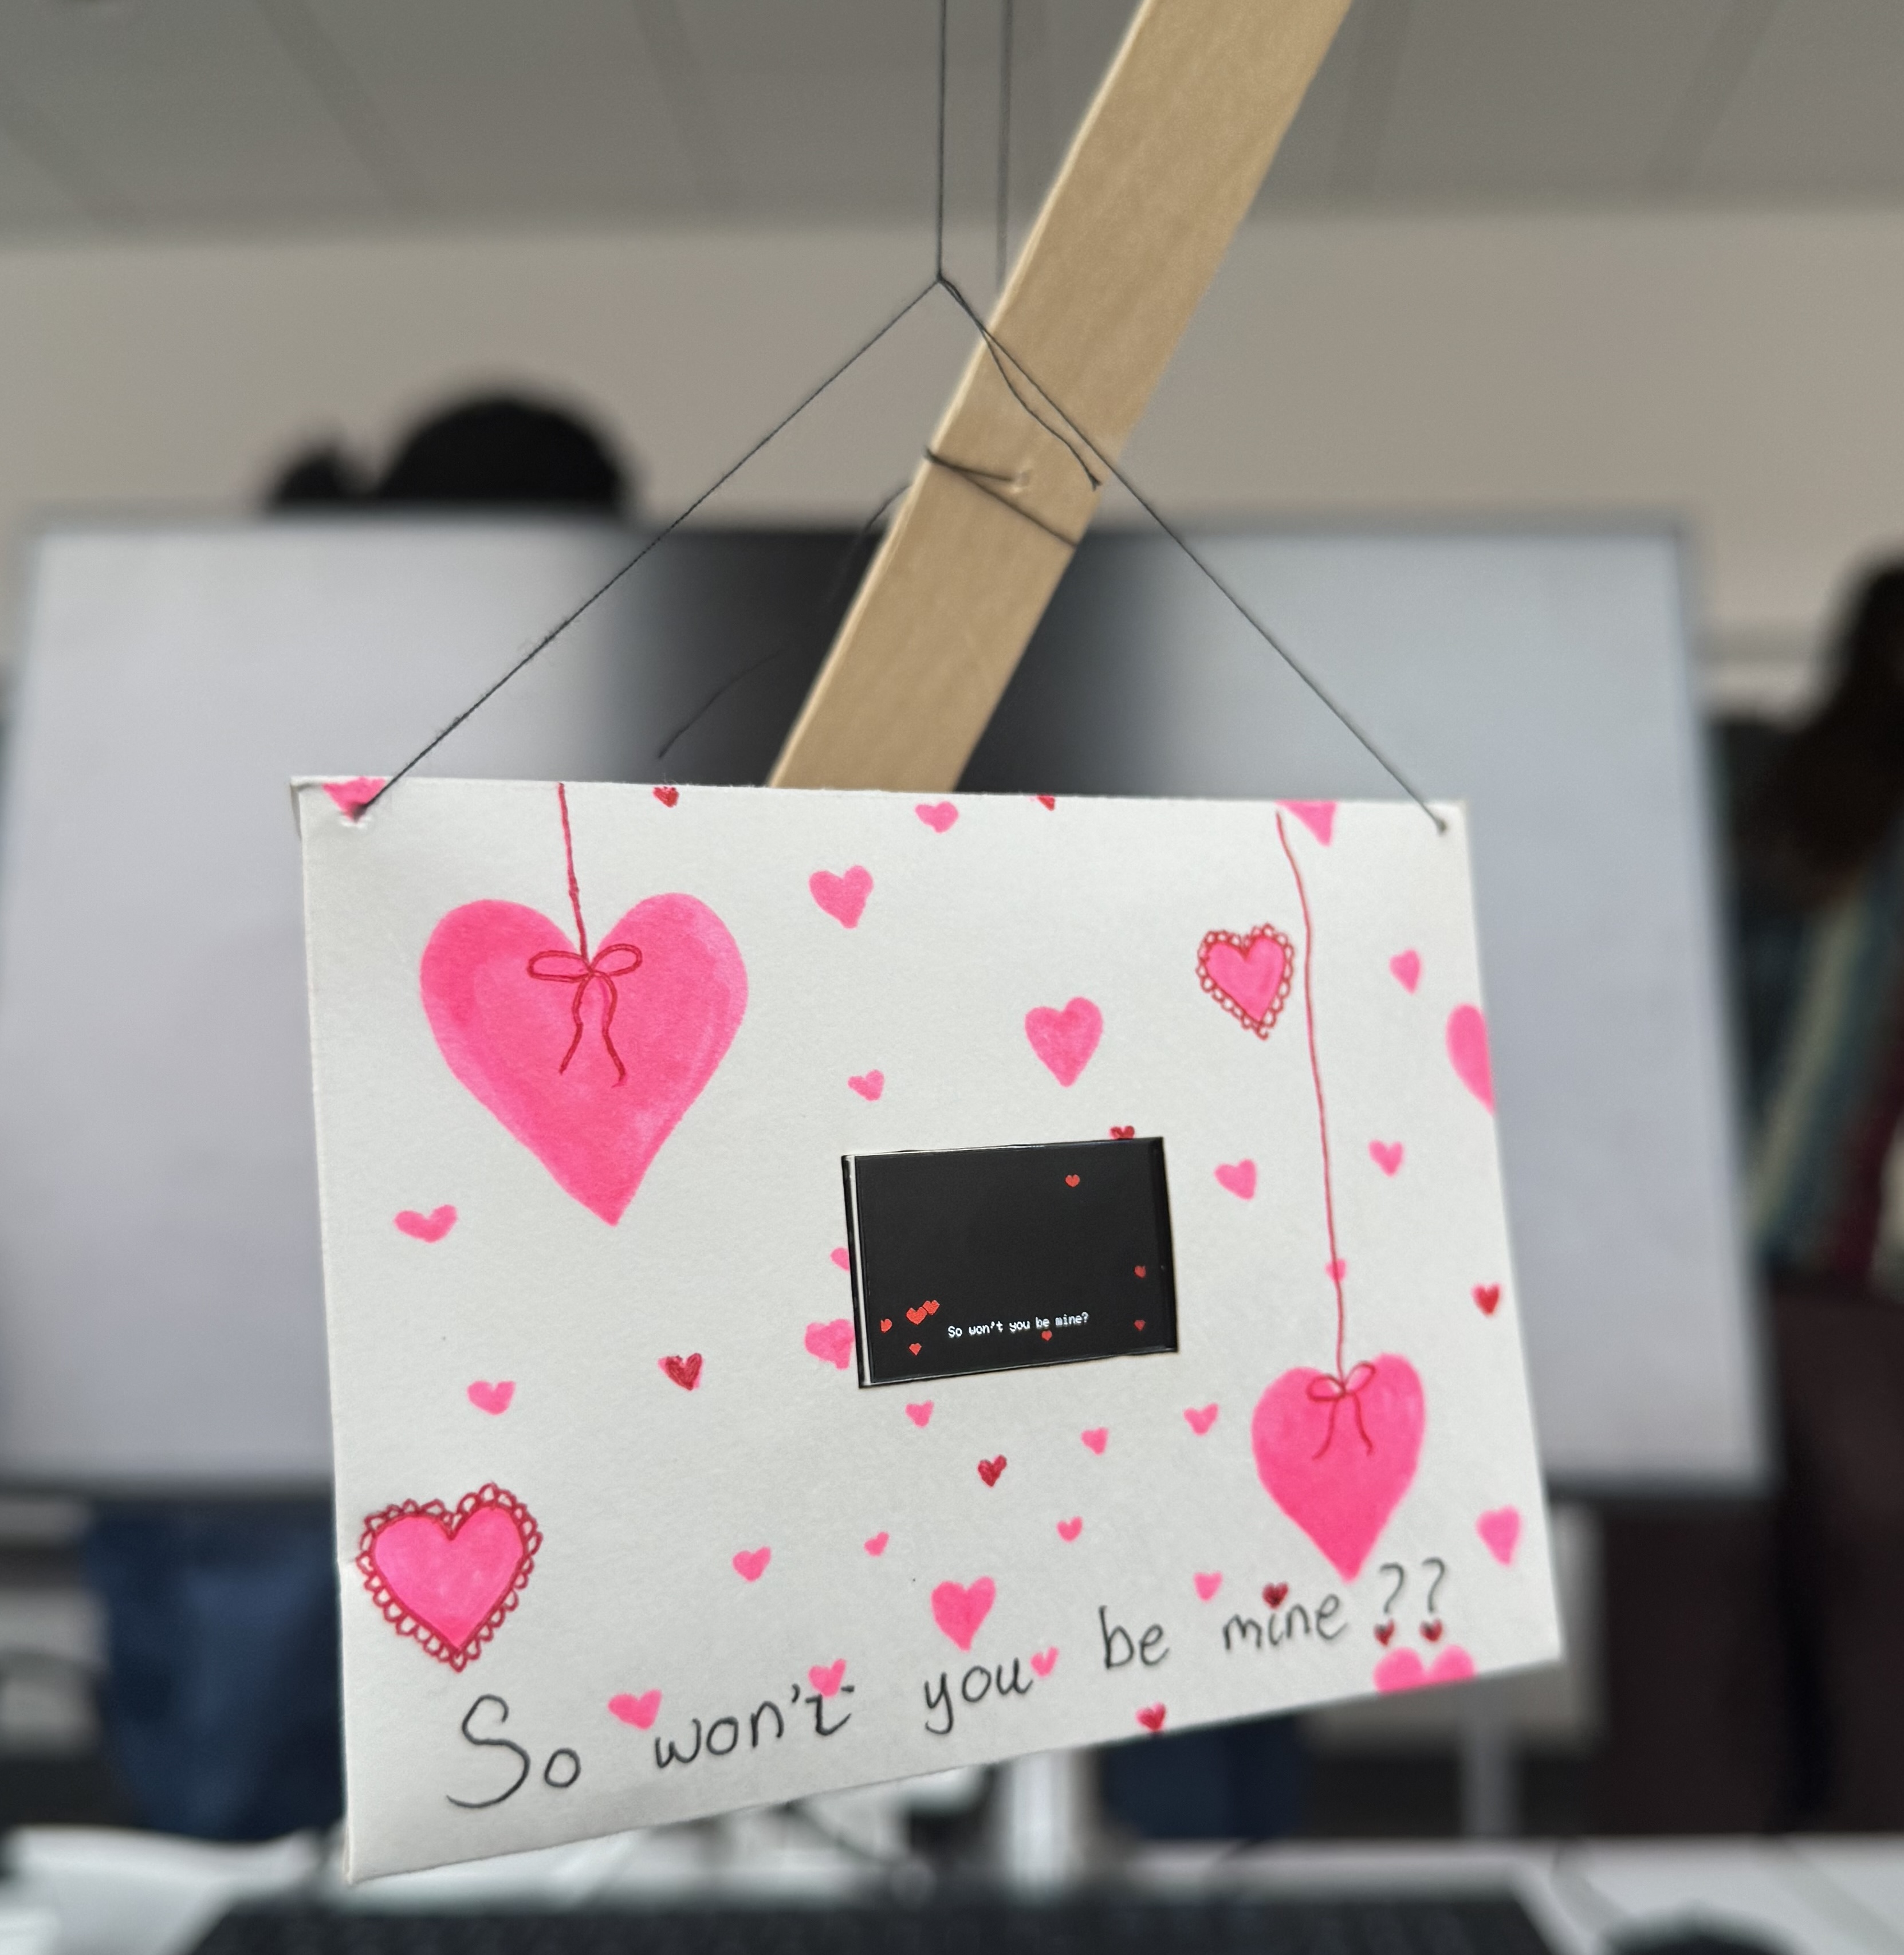 So won't you be mine?
So won't you be mine??